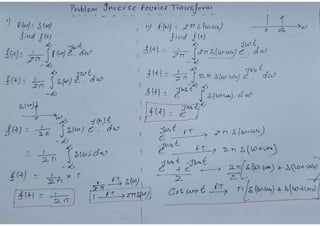 Problem Inverse Fourier Transform
1) F(ω) = δ(ω)
find f(t)
f(t) = 1/2π ∫ F(ω) e^jωt dω
f(t) = 1/2π ∫ δ(ω) e^jωt dω
δ(ω)
f(t) = 1/2π ∫ δ(ω) e^j(0)t dω
= 1/2π ∫ δ(ω) dω
f(t) = 1/2π × 1
f(t) = 1/2π
1/2π FT→ δ(ω)
1 FT→ 2πδ(ω)
F(ω) = 2π δ(ω-ω₀)
find f(t)
f(t) = 1/2π ∫ 2π δ(ω-ω₀) e^jωt dω
f(t) = 1/2π ∫ 2π δ(ω-ω₀) e^jω₀t dω
f(t) = e^jω₀t ∫ δ(ω-ω₀) dω
f(t) = e^jω₀t
e^jω₀t FT→ 2π δ(ω-ω₀)
FT→ 2π δ(ω+ω₀)
e^jω₀t + e^-jω₀t / 2 FT→ 2π/2 [δ(ω-ω₀) + δ(ω+ω₀)]
Cos ω₀t FT→ π[δ(ω-ω₀) + δ(ω+ω₀)]